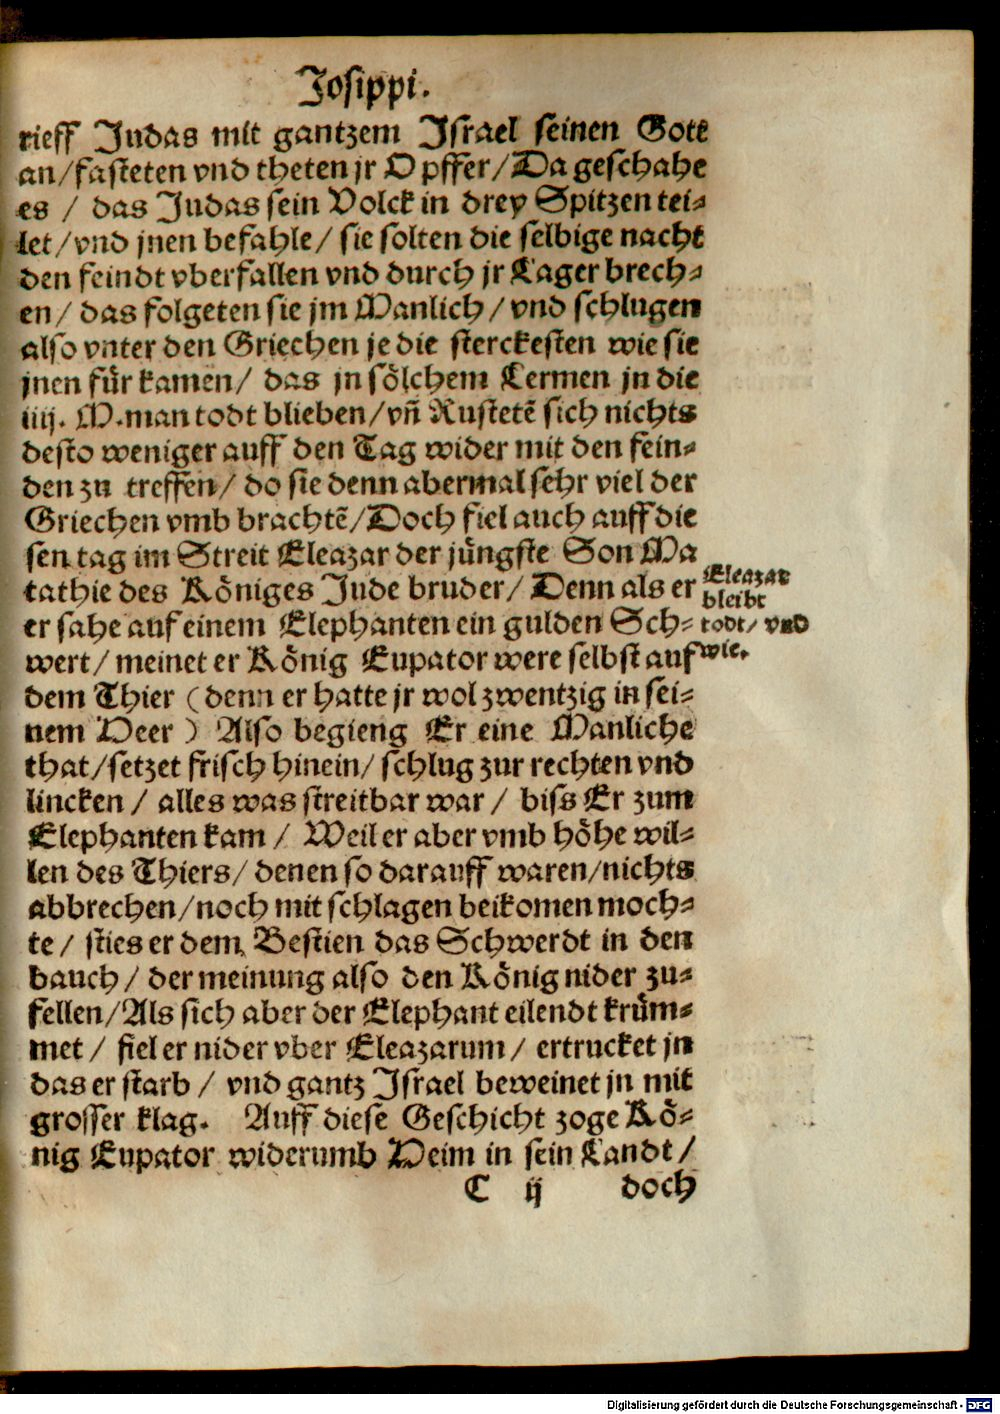 Josippi.
rieff Judas mit gantzem Israel seinen Gott
an/fasteten vnd theten jr Opffer/Da geschahe
es / das Judas sein Volck in drey Spitzen tei-
let/vnd jnen befahle/ sie solten die selbige nacht
den feindt vberfallen vnd durch jr Lager brech-
en/ das folgeten sie jm Manlich/vnd schlugen
also vnter den Griechen je die sterckesten wie sie
jnen für kamen/ das jn sölchem Lermen jn die
iiij. M.man todt blieben/vñ Rustetē sich nichts
desto weniger auff den Tag wider mit den fein-
den zu treffen/ do sie denn abermal sehr viel der
Griechen vmb brachtē/Doch fiel auch auff die
sen tag im Streit Eleazar der jüngste Son Ma
tathie des Königes Jude bruder/ Denn als er
er sahe auf einem Elephanten ein gulden Sch-
wert/ meinet er König Eupator were selbst auf
dem Thier (denn er hatte jr wol zwentzig in sei-
nem Heer) Also begieng Er eine Manliche
that/setzet frisch hinein/ schlug zur rechten vnd
lincken / alles was streitbar war / biss Er zum
Elephanten kam / Weil er aber vmb höhe wil-
len des Thiers/ denen so darauff waren/nichts
abbrechen/noch mit schlagen beikomen moch-
te / sties er dem Bestien das Schwerdt in den
bauch / der meinung also den König nider zu-
fellen/Als sich aber der Elephant eilendt krüm-
met / fiel er nider vber Eleazarum / ertrucket jn
das er starb / vnd gantz Israel beweinet jn mit
grosser klag. Auff diese Geschicht zoge Kö-
nig Eupator widerumb Heim in sein Landt /
C ij doch
Eleazar
bleibt
todt/ vnd
wie.
Digitalisierung gefördert durch die Deutsche Forschungsgemeinschaft - DFG